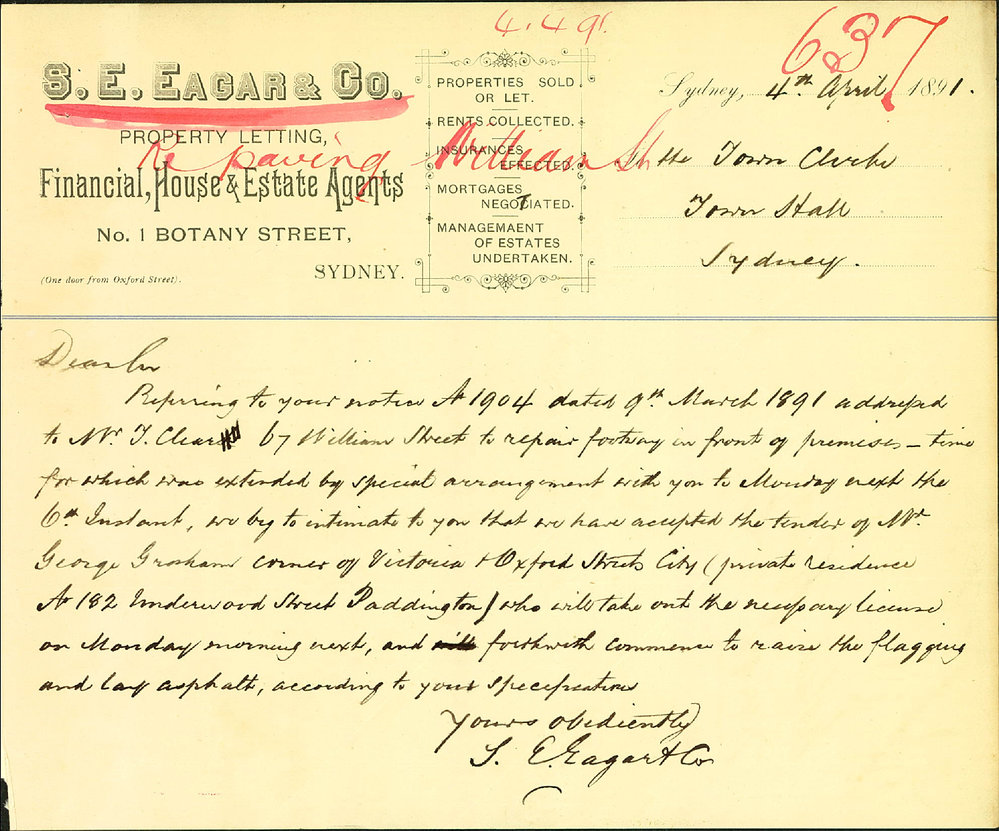 4.4.91.
637
S. E. EAGAR & CO.
PROPERTY LETTING,
Financial, House & Estate Agents
No. 1 BOTANY STREET,
SYDNEY.
(One door from Oxford Street).
PROPERTIES SOLD
OR LET.
RENTS COLLECTED.
INSURANCES
EFFECTED.
MORTGAGES
NEGOCIATED.
MANAGEMAENT
OF ESTATES
UNDERTAKEN.
Re paving William St
Sydney, 4th April, 1891.
To the Town Clerk
Town Hall
Sydney.
Dear Sir
Referring to your notice No 1904 dated 9th March 1891 addressed
to Mr T. Clear 67 William Street to repair footway in front of premises – time
for which was extended by special arrangement with you to Monday next the
6th Instant, we beg to intimate to you that we have accepted the tender of Mr.
George corner of Victoria & Oxford Streets City (private residence
No 182 Underwood Street Paddington) who will take out the necessary license
on Monday morning next, and forthwith commence to raise the flagging
and lay asphalt, according to your specification
Yours obediently
S. E. Eagar & Co